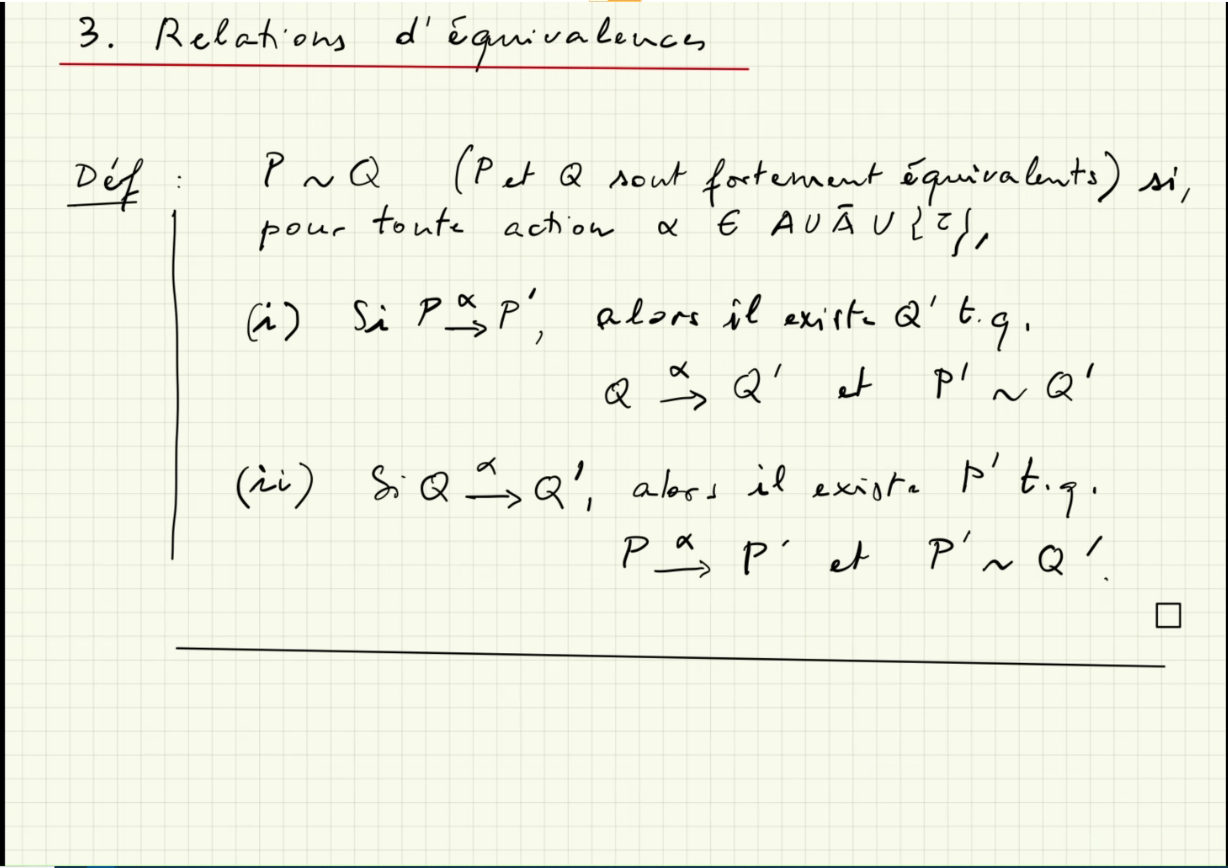 3. Relations d'équivalences
Déf : P ~ Q (P et Q sont fortement équivalents) si,
pour toute action α ∈ A ∪ Ā ∪ {τ},
(i) Si P →^α P', alors il existe Q' t.q.
Q →^α Q' et P' ~ Q'
(ii) Si Q →^α Q', alors il existe P' t.q.
P →^α P' et P' ~ Q'.
□